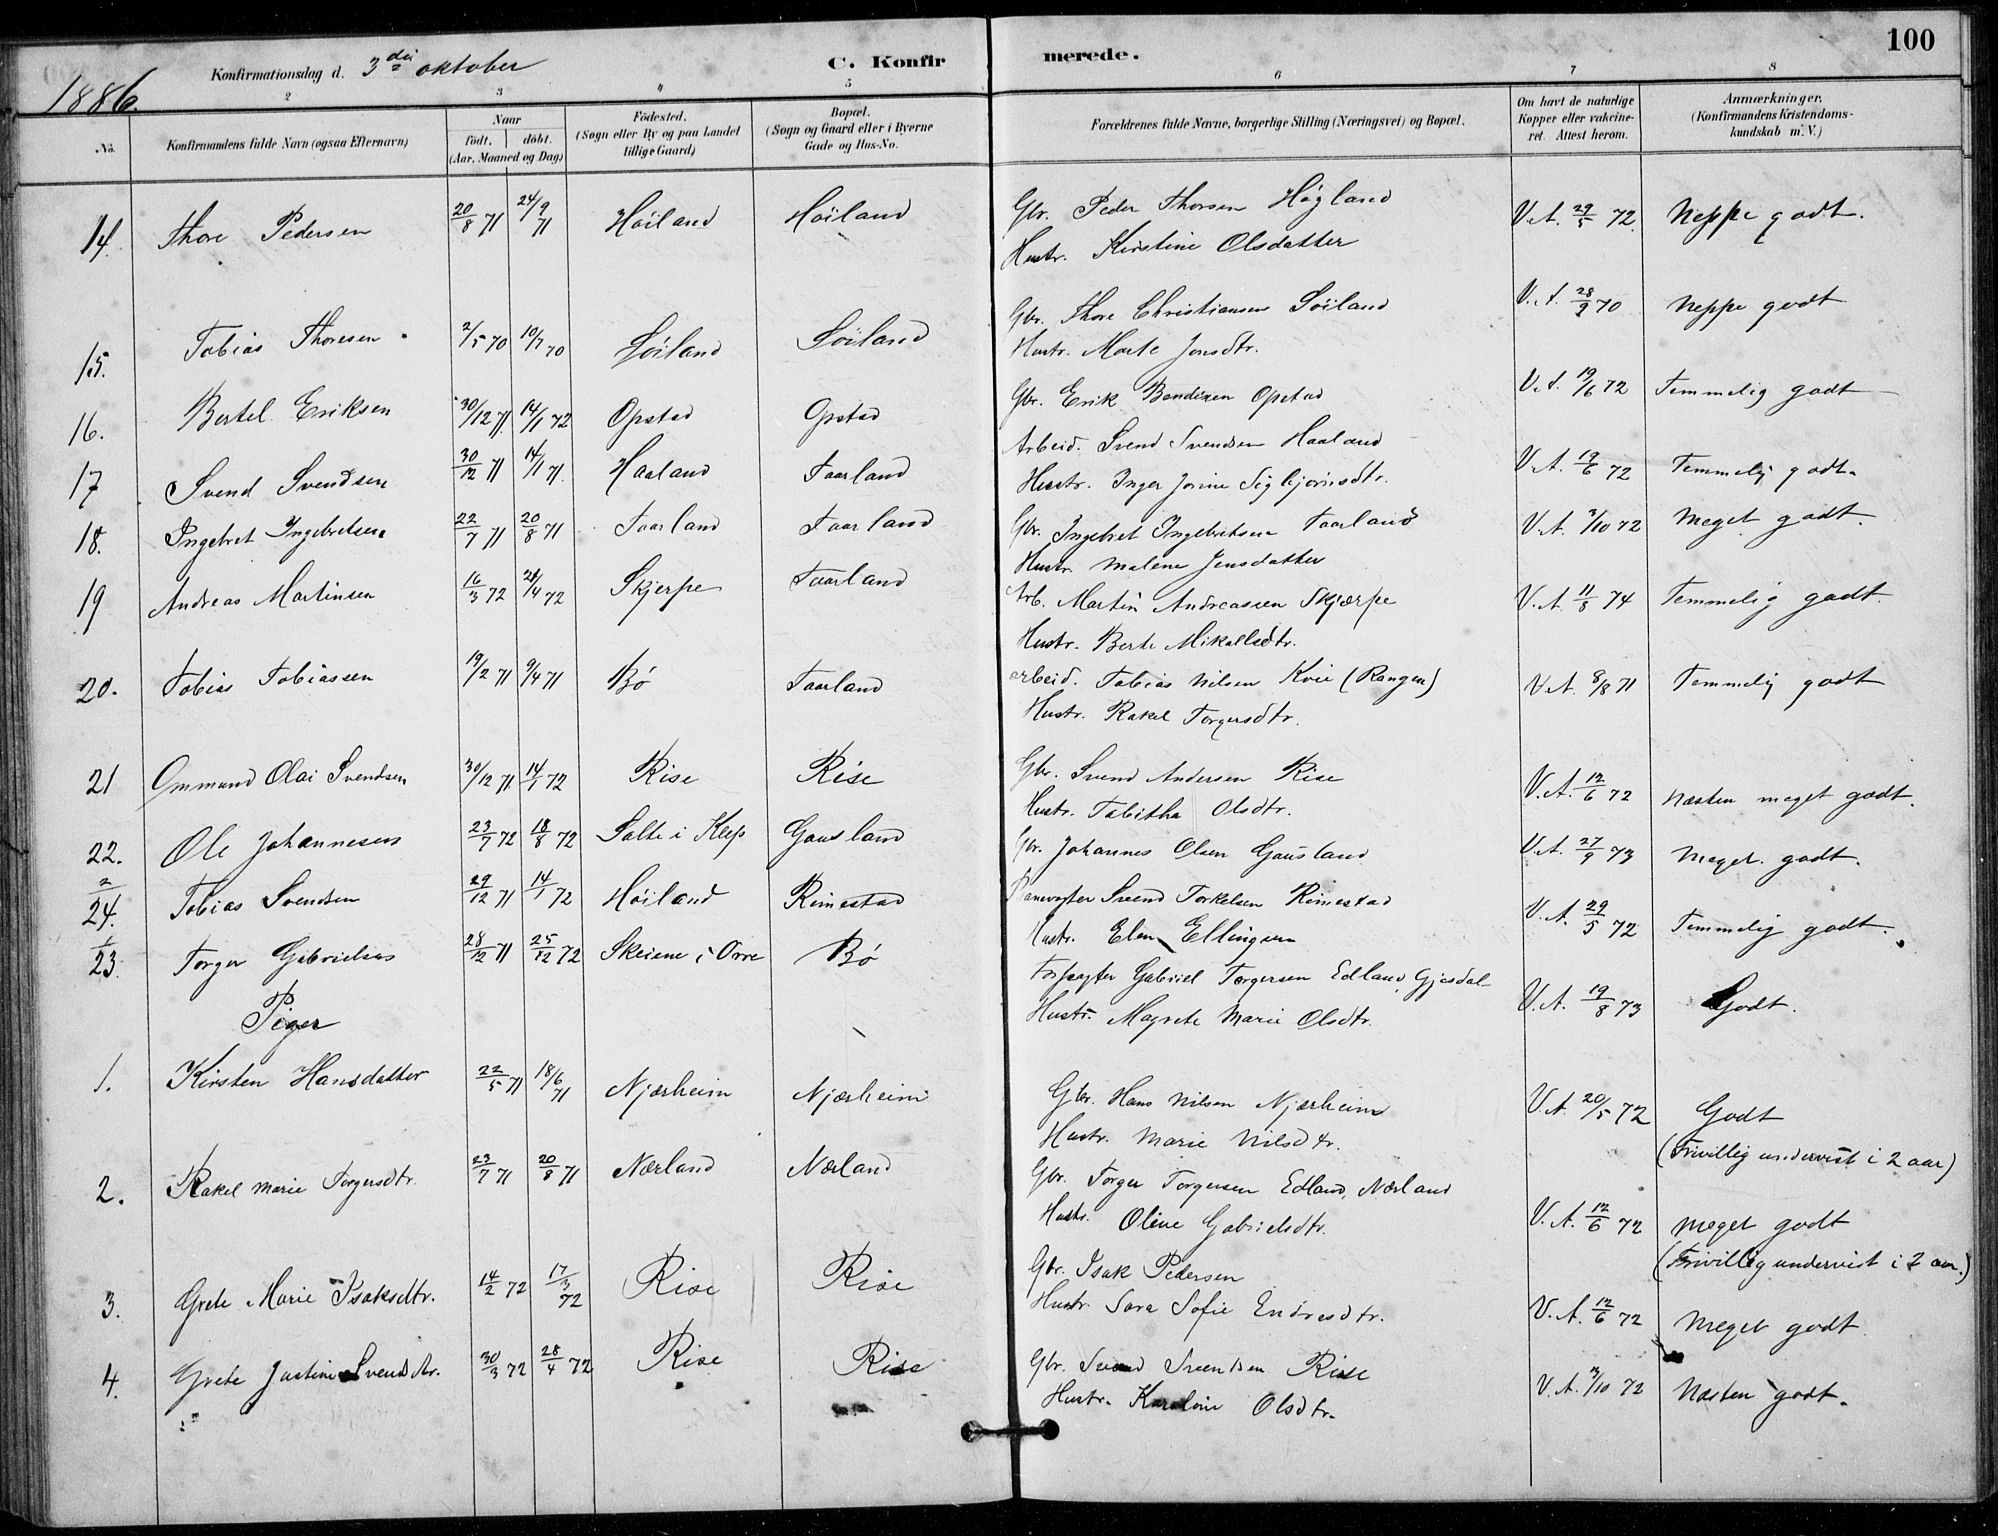 100
1886.
Konfirmationsdag d. 3die oktober
C. Konfirmerede.
2 3 4 5 6 7 8
No.
Konfirmandens fulde Navn (ogsaa Efternavn)
Naar født. døbt. (Aar, Maaned og Dag)
Födested. (Sogn eller By og paa Landet tillige Gaard)
Bopæl. (Sogn og Gaard eller i Byerne Gade og Hus-No.
Forældrenes fulde Navne, borgerlige Stilling (Næringsvei) og Bopæl.
Om havt de naturlige Kopper eller vakcineret. Attest herom.
Anmærkninger. (Konfirmandens Kristendomskundskab m. V.)
14. Thore Pedersen 20/8 71 24/9 71 Høiland Høiland Gbr. Peder Thorsen Høgland V.A. 29/5 72. Neppe godt.
Hustr. Kirstine Olsdatter
15. Tobias Thoresen 2/5 70 10/7 70 Søiland Søiland Gbr. Thore Christiansen Søiland V.A. 28/9 70 Neppe godt
Hustr. Marte Jonsdtr.
16. Bertel Eriksen 30/12 71. 14/1 72 Opstad Opstad Gbr. Erik Bendixen Opstad V.A. 19/6 72 Temmelig godt
17 Svend Svendsen 30/12 71 14/1 71. Haaland Taarland Arbeid. Svend Svendsen Haaland V.A. 19/6 72 Temmelig godt.
Hustr. Inger Jorine Sigbjørnsdtr.
18. Ingebret Ingebretsen 22/7 71 20/8 71 Taarland Taarland Gbr. Ingebret Ingebretsen Taarland V.A. 3/10 72 Meget godt.
Hustr. Malene Jensdatter
19 Andreas Martinsen 16/3 72 21/4 72 Skjerpe Taarland Arb. Martin Andreassen Skjærpe V.A. 11/8 74 Temmelig godt.
Hustr. Berte Mikallsdtr.
20. Tobias Tobiassen 19/2 71 9/4 71 Bø Taarland arbeid. Tobias Nilsen Kvie (Rangen) V.A. 8/8 71 Temmelig godt
Hustr. Rakel Torgersdtr.
21 Ommund Olai Svendsen 30/12 71 14/1 72 Rise Rise Gbr. Svend Andersen Rise V.A. 12/6 72 Næsten meget godt.
Hustr. Tabitha Olsdtr.
22. Ole Johannesen 23/7 72 18/8 72 Salte i Klep Gausland Gbr. Johannes Olsen Gausland V.A. 27/9 73 Meget godt.
2/24. Tobias Svendsen 29/12 71 14/1 72 Høiland Rimestad Banevogter Svend Torkelsen Rimestad V.A. 29/5 72 Temmelig godt.
Hustr. Elen Ellingsen
1/23. Torger Gabrielsen 28/12 71 25/12 72 Skeiene i Orre Bø Gabriel Torgersen Edland, Gjesdal V.A. 19/8 73 Godt.
Hustr. Magrete Marie Olsdtr.
Piger
1. Kirsten Hansdatter 22/5 71 18/6 71 Njærheim Njærheim Gbr. Hans Nilsen Njærheim V.A. 20/5 72 Godt
Hustr. Marie Nilsdtr. (Frivillig undervist i 2 aar)
2. Rakel Marie Torgersdtr. 23/7 71 20/8 71 Nærland Nærland Gbr. Torger Torgersen Edland, Nærland V.A. 12/6 72 Meget godt
Hustr. Oline Gabrielsdtr. (Frivillig undervist i 2 aar.)
3. Grete Marie Isaksdtr. 14/2 72 17/3 72 Rise Rise Gbr. Isak Pedersen V.A. 12/6 72 Meget godt
Hustr. Sara Sofie Endresdtr.
4. Grete Justine Svendsdtr. 30/3 72 28/4 72 Rise Rise Gbr. Svend Svendsen Rise V.A. 3/10 72 Næsten godt.
Hustr. Karoline Olsdtr.